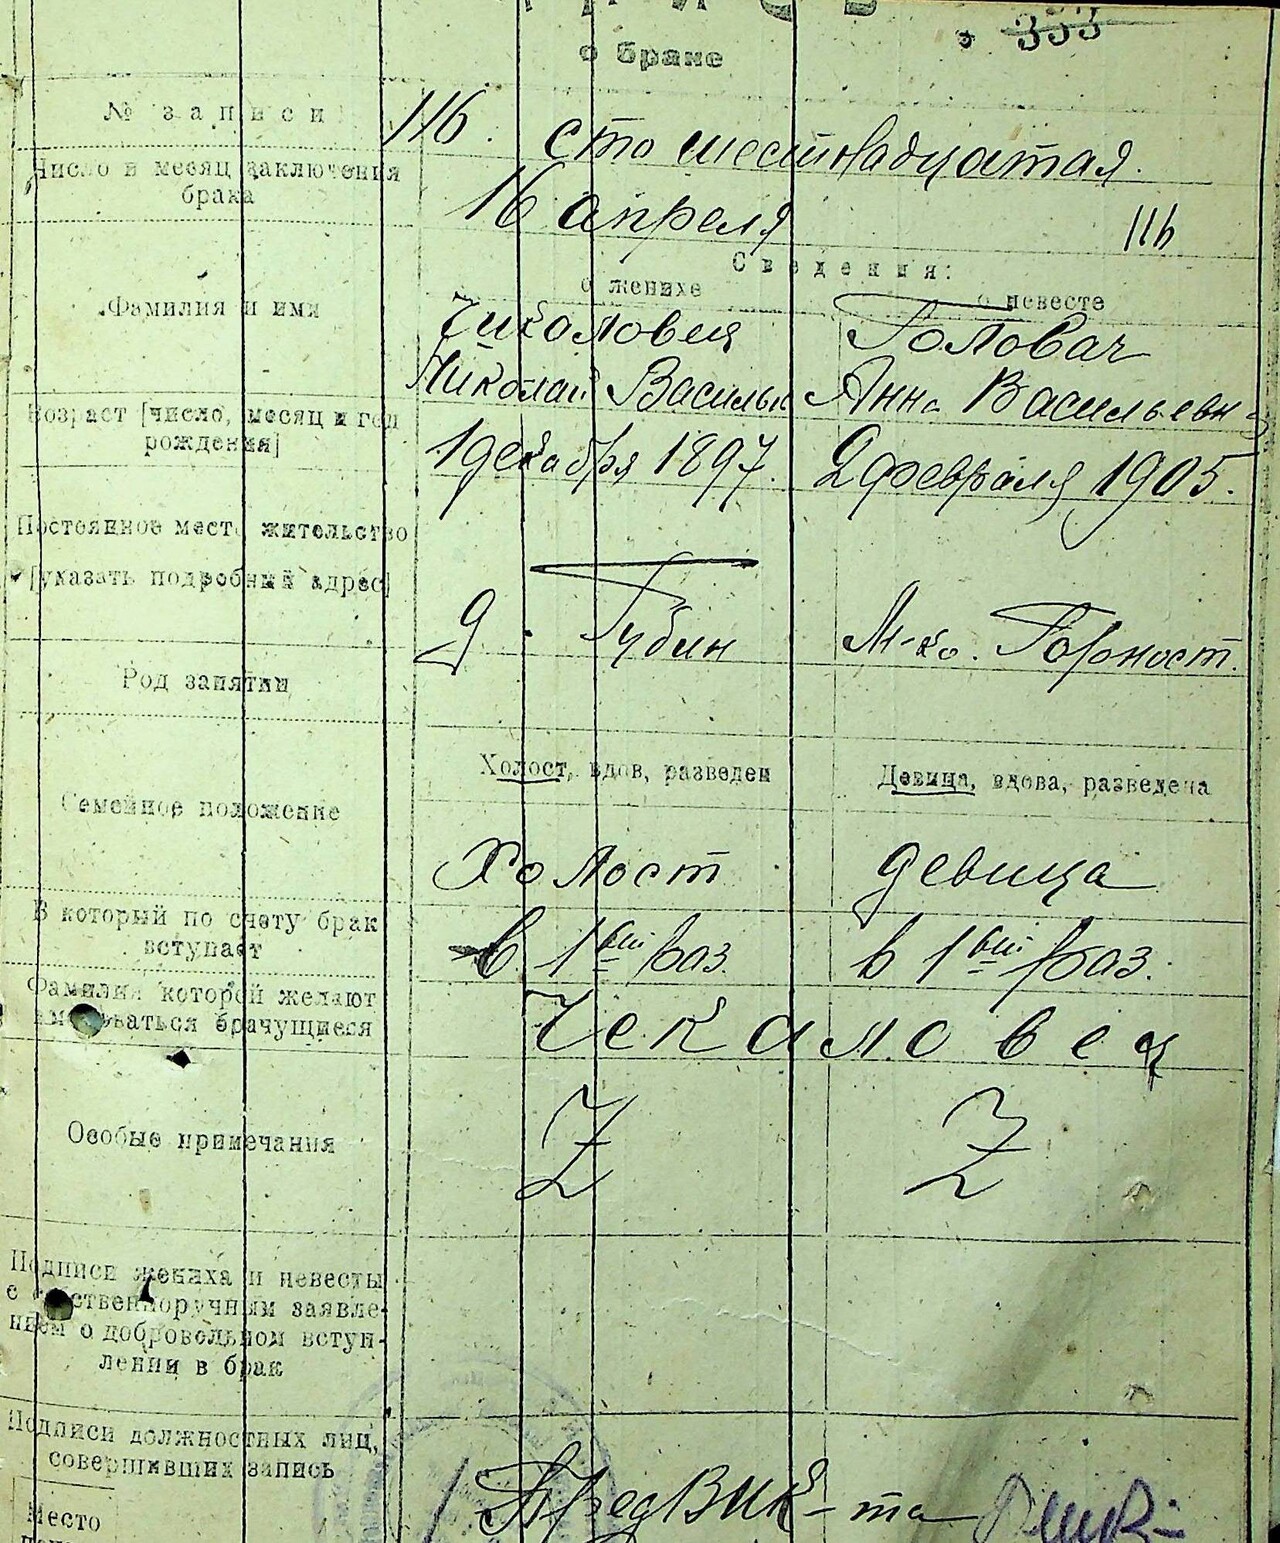 о браке
353
№ записи
116. сто шестнадцатая.
Число и месяц заключения
брака
16 апреля
116
Сведения:
о женихе
о невесте
Фамилия и имя
Чикаловец
Головач
Николай Васильев
Анна Васильевн
Возраст [число, месяц и год
рождения]
1 декабря 1897.
2 февраля 1905.
Постоянное место жительство
[указать подробный адрес]
д. Губин
М-ко. Горност.
Род занятий
Холост, вдов, разведен
Девица, вдова, разведена
Семейное положение
Холост
девица
В который по счету брак
вступает
в 1ый раз.
в 1ый раз.
Фамилия которой желают
именоваться брачущиеся
Чекаловец
Z
Z
Особые примечания
Подписи жениха и невесты
с собственноручным заявле-
нием о добровольном вступ-
лении в брак
Подписи должностных лиц,
совершивших запись
ПредВИК-та
Место